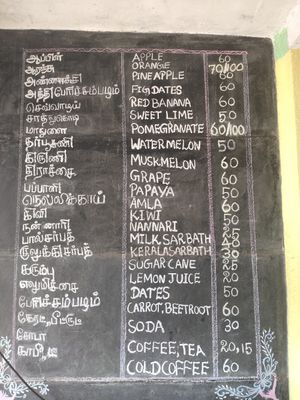 ஆப்பிள் APPLE 60
ஆரஞ்சு ORANGE 70/100
அன்னாசி PINEAPPLE
அத்திபேரிச்சம்பழம் FIG DATES 60
செவ்வாழை RED BANANA 60
சாத்துகொடி SWEET LIME 50
மாதுளை POMEGRANATE 60/100
தர்பூசணி WATERMELON 50
கிருணி MUSKMELON 60
திராட்சை GRAPE 60
பப்பாளி PAPAYA 50
நெல்லிக்காய் AMLA 60
கிவி KIWI
நன்னாரி NANNARI
பால்சர்பத் MILK SARBATH
குலுக்கிசர்பத் KERALA SARBATH
கரும்பு SUGAR CANE 25
எலுமிச்சை LEMON JUICE 20
பேரிச்சம்பழம் DATES 50
கேரட், பீட்ரூட் CARROT, BEETROOT 60
சோடா SODA 30
காபி, டீ COFFEE, TEA 20, 15
COLD COFFEE 60